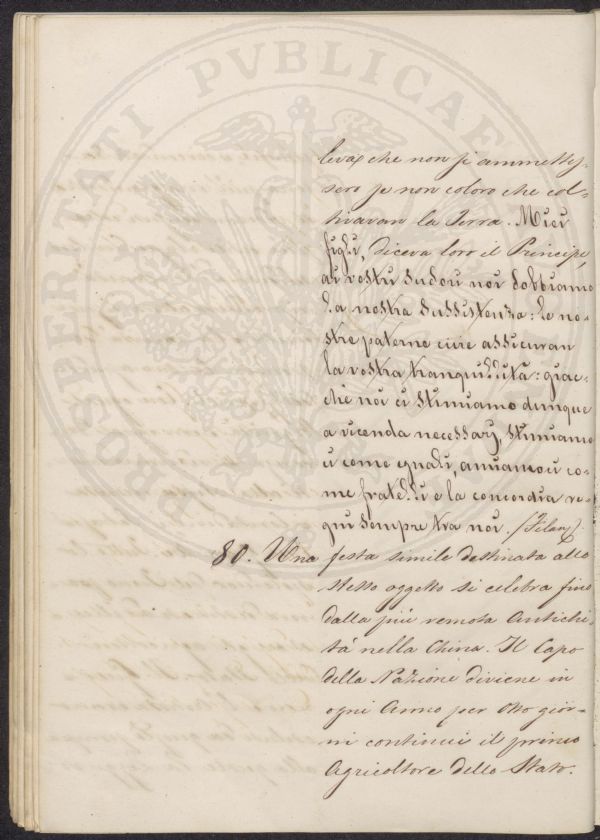 PROSPERITATI PVBLICAE
levax che non si ammettes-
sero se non coloro che col-
tivavan la Terra. Miei
figli, diceva loro il Principe,
ai vostri sudori noi dobbiamo
la nostra sussistenza: le no-
stre paterne cure assicuran
la vostra tranquillità: giac-
chè noi ci stimiamo dunque
a vicenda necessarj, stimiamo
ci come eguali, amiamoci co-
me fratelli e la concordia re-
gni sempre tra noi. (Filang)
80. Una festa simile destinata allo
stesso oggetto si celebra fino
dalla più remota Antichi-
tà nella China. Il Capo
della Nazione diviene in
ogni Anno per Otto gior-
ni continui il primo
Agricoltore dello Stato.